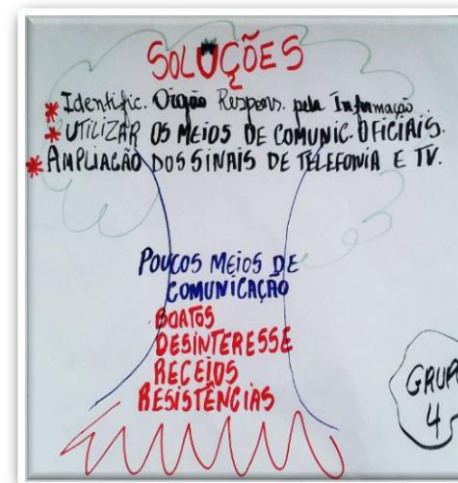 SOLUÇÕES
* Identific. Orgão Respons. pela Informação
* UTILIZAR OS MEIOS DE COMUNIC. OFICIAIS.
* AMPLIAÇÃO DOS SINAIS DE TELEFONIA E TV.
POUCOS MEIOS DE
COMUNICAÇÃO
BOATOS
DESINTERESSE
RECEIOS
RESISTÊNCIAS
GRUP
4